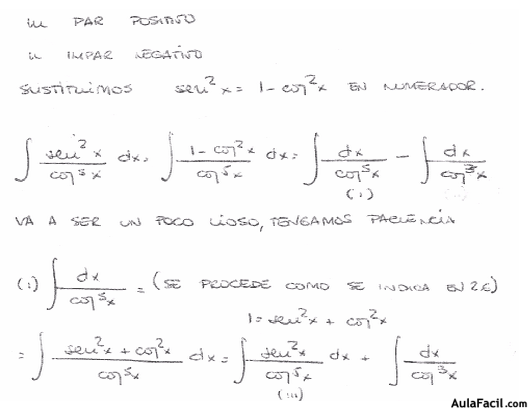 m PAR POSITIVO
n IMPAR NEGATIVO
SUSTITUIMOS sen²x = 1 - cos²x EN NUMERADOR.
∫ sen²x / cos⁵x dx = ∫ (1 - cos²x) / cos⁵x dx = ∫ dx / cos⁵x - ∫ dx / cos³x
(i)
VA A SER UN POCO LIOSO, TENGAMOS PACIENCIA
(i) ∫ dx / cos⁵x = (SE PROCEDE COMO SE INDICA EN 2.c)
1 = sen²x + cos²x
= ∫ (sen²x + cos²x) / cos⁵x dx = ∫ sen²x / cos⁵x dx + ∫ dx / cos³x
(iii)
AulaFacil.com